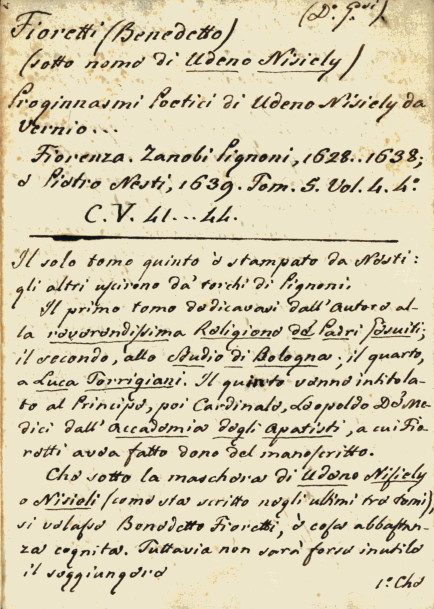 (D.º G.si)
Fioretti (Benedetto)
(sotto nome di Udeno Nisiely)
Proginnasmi Poetici di Udeno Nisiely da
Vernio...
Fiorenza. Zanobi Pignoni, 1628..1638;
e Pietro Nesti, 1639. Tom. 5. Vol. 4. 4.º
C. V. 41...44.
Il solo tomo quinto è stampato da Nesti:
gli altri uscirono da' torchi di Pignoni.
Il primo tomo dedicavasi dall'Autore al-
la reverendissima Religione de' Padri Gesuiti;
il secondo, allo Studio di Bologna; il quarto,
a Luca Torrigiani. Il quinto venne intitola-
to al Principe, poi Cardinale, Leopoldo De' Me-
dici dall'Accademia degli Apatisti, a cui Fio-
retti avea fatto dono del manoscritto.
Che sotto la maschera di Udeno Nisiely
o Nisieli (come sta scritto negli ultimi tre tomi),
si velasse Benedetto Fioretti, è cosa abbastan-
za cognita. Tuttavia non sarà forse inutile
il soggiungere
1.º Che